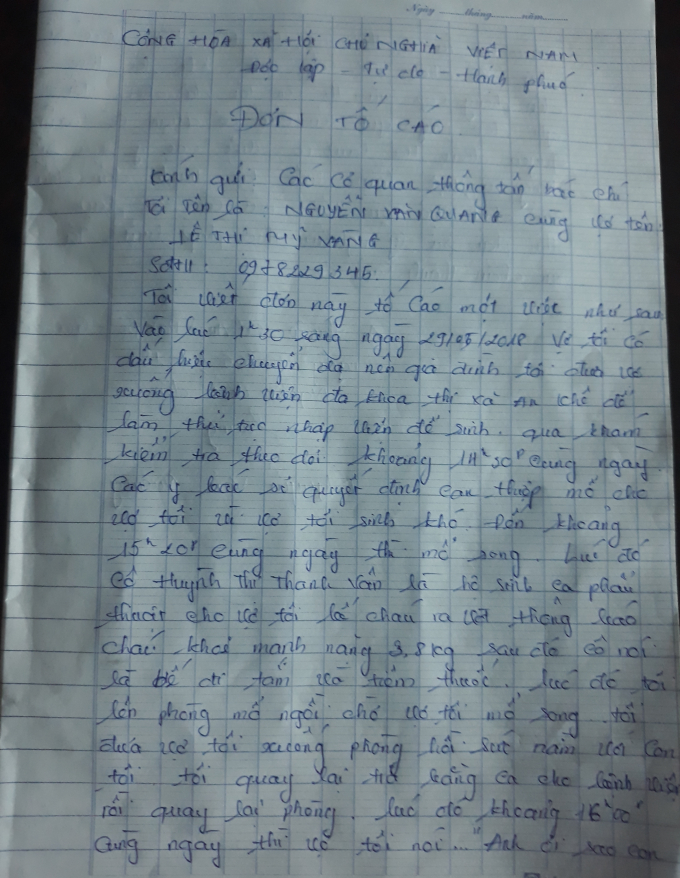 Ngày tháng năm
CỘNG HÒA XÃ HỘI CHỦ NGHĨA VIỆT NAM
Độc lập - Tự do - Hạnh phúc
ĐƠN TỐ CÁO
Kính gửi: Các cơ quan thông tấn báo chí
Tôi tên là: NGUYỄN VĂN QUANG cùng vợ tên:
LÊ THỊ MỸ VÀNG
SĐT: 0978229345.
Tôi viết đơn này tố cáo một việc như sau
Vào lúc 1h30 sáng ngày 29/05/2018 Vợ tôi có
dấu hiệu chuyển dạ nên gia đình tôi đưa vợ
xuống bệnh viện đa khoa thị xã An Khê để
làm thủ tục nhập viện để sinh. qua khám
kiểm tra theo dõi khoảng 14h30p cùng ngày.
Các y bác sĩ quyết định can thiệp mổ cho
vợ tôi vì vợ tôi sinh khó. Đến khoảng
15h20p cùng ngày thì mổ song. Lúc đó
cô Huỳnh Thị Thanh Vân là hộ sinh ca phẩu
thuật cho vợ tôi bế cháu ra và thông báo
cháu khoẻ mạnh nặng 3,8kg sau đó cô nói
là bế đi tắm và tiêm thuốc. lúc đó tôi
lên phòng mổ ngồi chờ vợ tôi mổ song. tôi
đưa vợ tôi xuống phòng hồi sức nằm với con
tôi. tôi quay lại trả băng ca cho bệnh viện
rồi quay lại phòng. lúc đó khoảng 16h00'
cùng ngày thì vợ tôi nói... "Anh ơi sao con